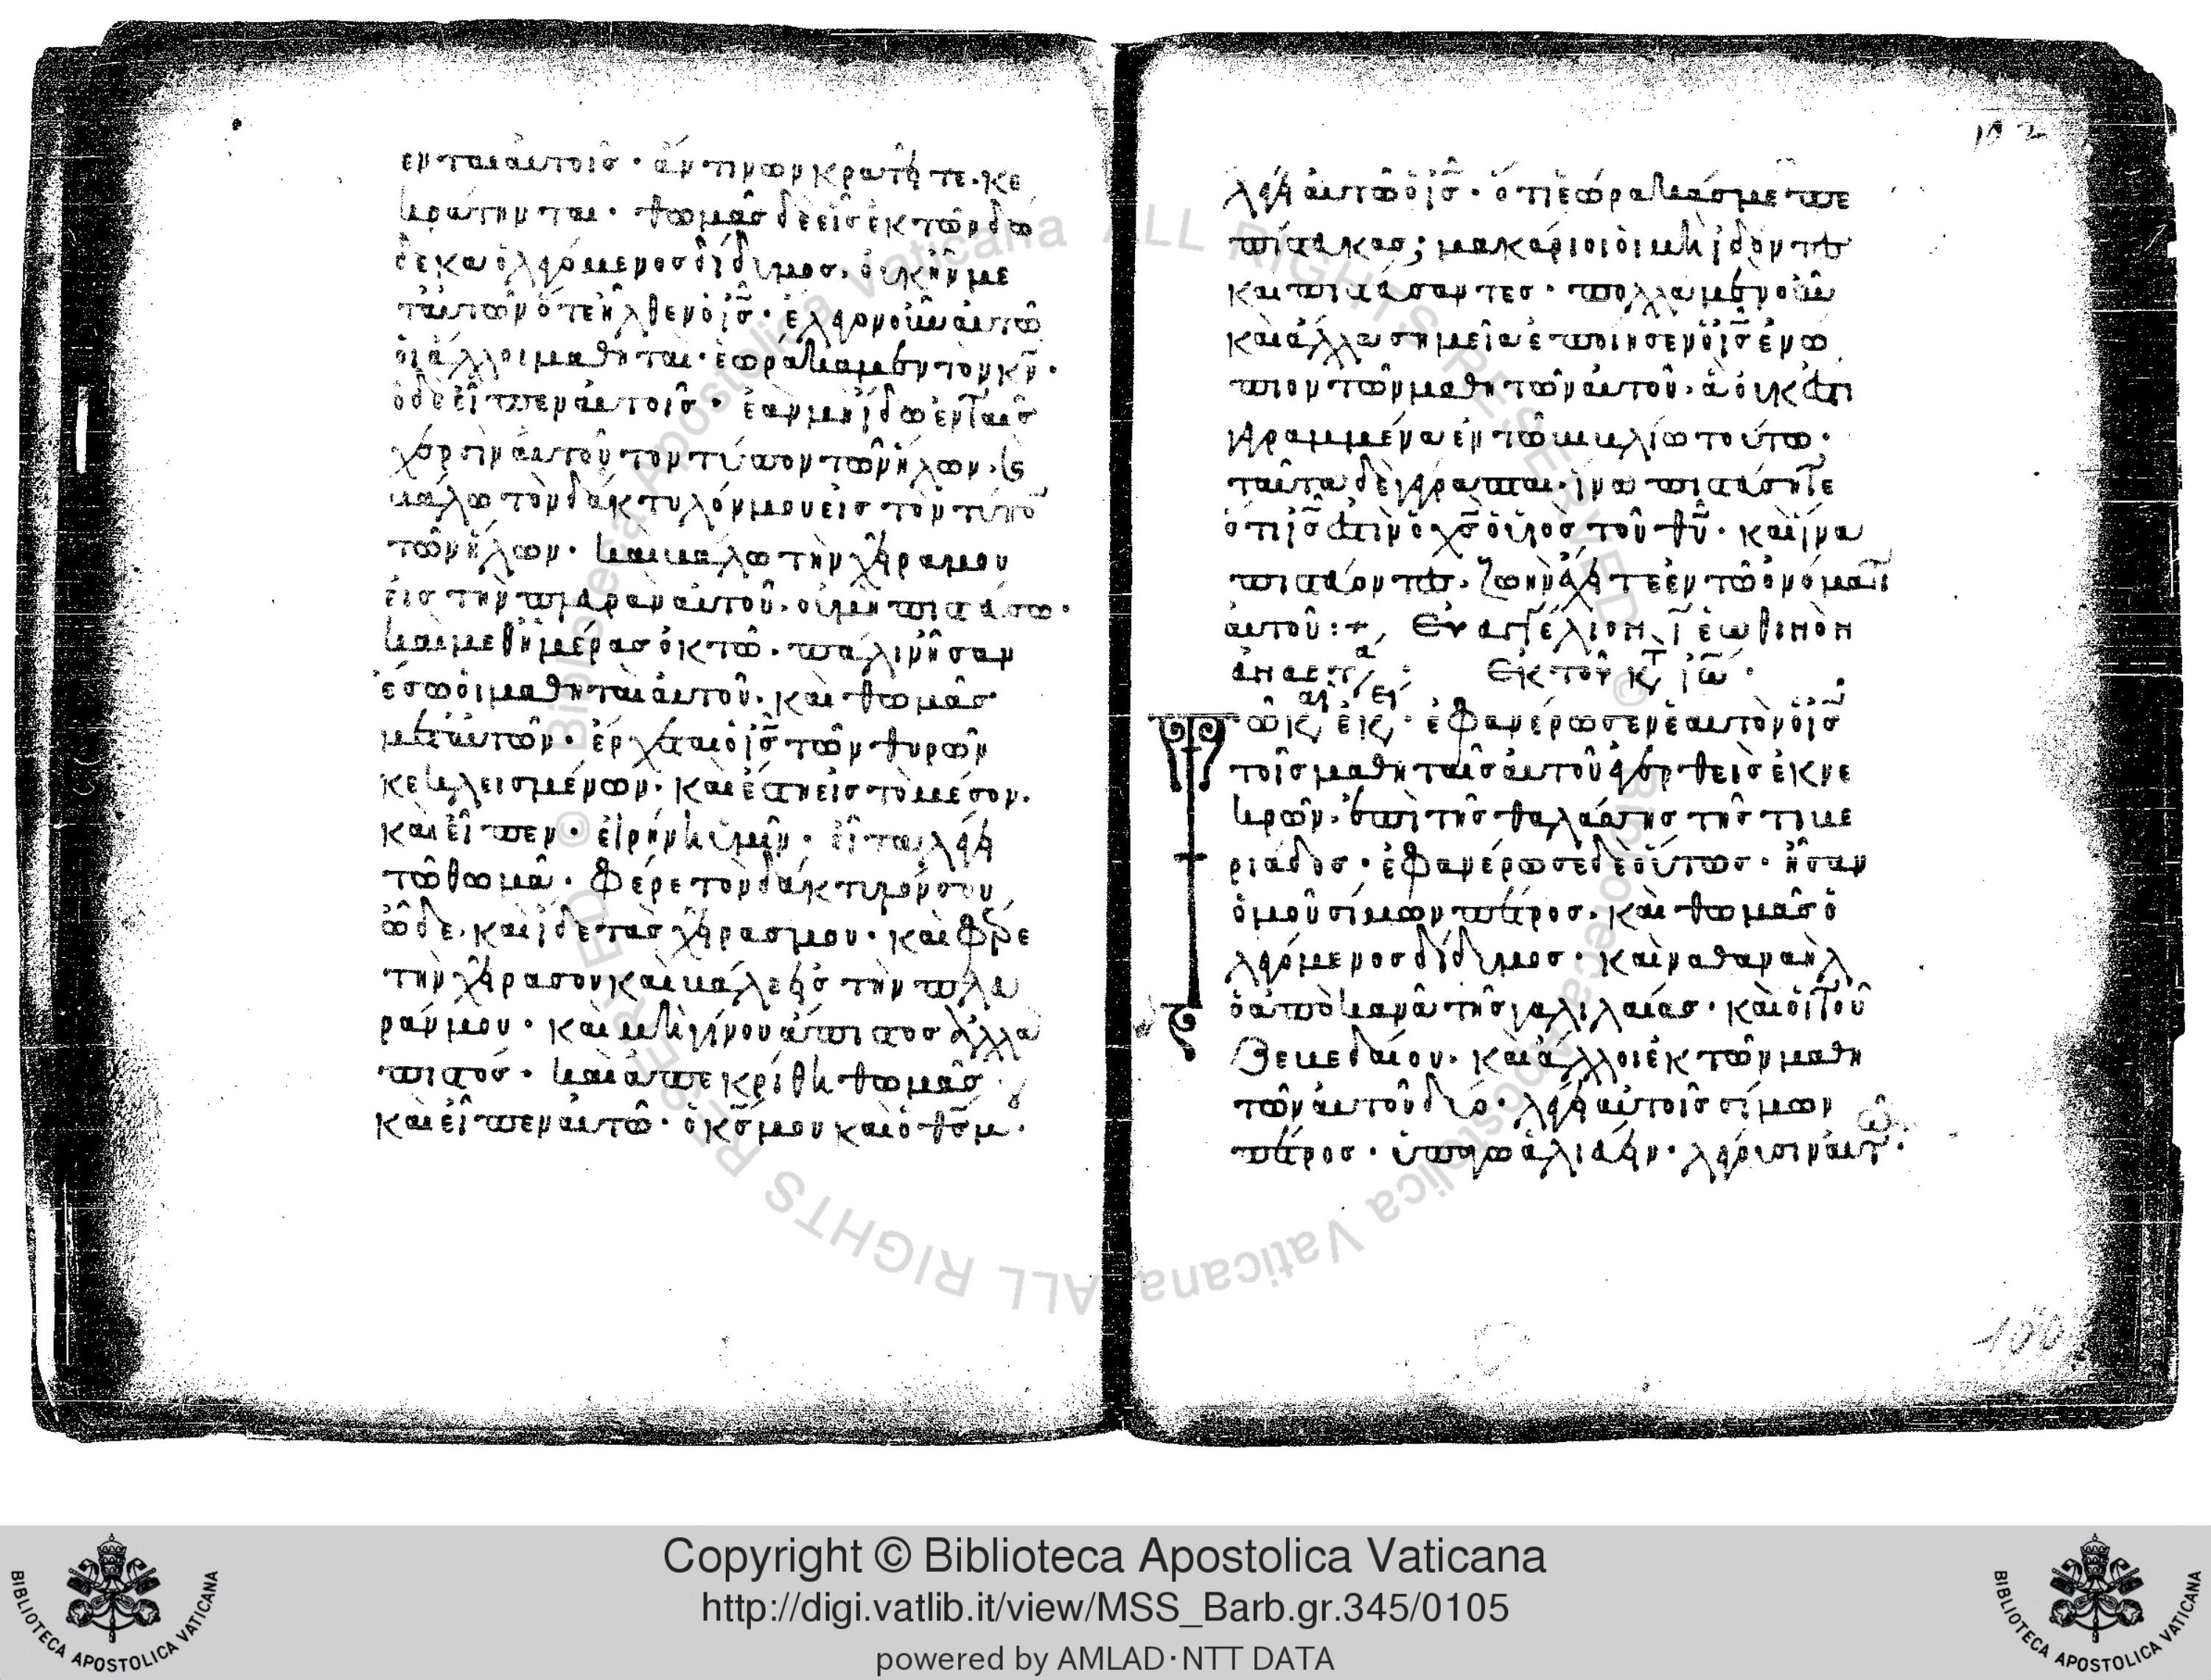 ενται αυτοῖς· ἄν τινων κρατῆτε. κε
κράτηνται· θωμᾶς δὲ εἷς ἐκ τῶν δώ
δεκα ὁ λεγόμενος δίδυμος. οὐκ ἦν με
τ' αὐτῶν ὅτε ἦλθεν ὁ ἰς̄· ἔλεγον οὖν αὐτῶ
οἱ ἄλλοι μαθηταί· ἑωράκαμεν τὸν κν̄·
ὁ δὲ εἶπεν αὐτοῖς· ἐὰν μὴ ἴδω ἐν ταῖς
χερσὶν αὐτοῦ τὸν τύπον τῶν ἥλων. καὶ
βάλω τὸν δάκτυλόν μου εἰς τὸν τύπον
τῶν ἥλων· καὶ βάλω τὴν χεῖρα μου
εἰς τὴν πλευρὰν αὐτοῦ. οὐ μὴ πιστεύσω·
καὶ μεθ' ἡμέρας ὀκτὼ. πάλιν ἦσαν
ἔσω οἱ μαθηταὶ αὐτοῦ. καὶ θωμᾶς
μετ' αὐτῶν· ἔρχεται ὁ ἰς̄ τῶν θυρῶν
κεκλεισμένων. καὶ ἔστη εἰς τὸ μέσον.
καὶ εἶπεν· εἰρήνη ὑμῖν· εἶτα λέγει
τῶ θωμᾶ. φέρε τὸν δάκτυλόν σου
ὧδε. καὶ ἴδε τὰς χεῖρας μου· καὶ φέρε
τὴν χεῖρα σου καὶ βάλε εἰς τὴν πλευ
ράν μου· καὶ μὴ γίνου ἄπιστος ἀλλὰ
πιστός· καὶ ἀπεκρίθη θωμᾶς
καὶ εἶπεν αὐτῶ· ὁ κς̄ μου καὶ ὁ θς̄ μου·
102
λέγει αὐτῶ ὁ ἰς̄· ὅτι ἑώρακάς με πε
πίστευκας; μακάριοι οἱ μὴ ἰδόντες
καὶ πιστεύσαντες· πολλὰ μὲν οὖν
καὶ ἄλλα σημεῖα ἐποίησεν ὁ ἰς̄ ἐνώ
πιον τῶν μαθητῶν αὐτοῦ. ἃ οὐκ ἔστι
γεγραμμένα ἐν τῶ βιβλίω τούτω·
ταῦτα δὲ γέγραπται. ἵνα πιστεύσητε
ὅτι ἰς̄ ἐστὶν ὁ χς̄ ὁ υἱος τοῦ θῡ· καὶ ἵνα
πιστεύοντες. ζωὴν ἔχητε ἐν τῶ ὀνόματι
αὐτοῦ:+ Εὐαγγέλιον ῑ ἑωθινὸν
ἀναστά: Εκ τοῦ κτ ἰω̄·
Τῶ καιρῶ ἐκείνω· ἐφανέρωσεν ἑαυτὸν ὁ ἰς̄
τοῖς μαθηταῖς αὐτοῦ ἐγερθεὶς ἐκ νε
κρῶν. ἐπὶ τῆς θαλάσσης τῆς τιβε
ριάδος· ἐφανέρωσε δὲ οὕτως· ἦσαν
ὁμοῦ σίμων πέτρος. καὶ θωμᾶς ὁ
λεγόμενος δίδυμος· καὶ ναθαναὴλ
ὁ ἀπὸ κανᾶ τῆς γαλιλαίας· καὶ οἱ τοῦ
Ζεβεδαίου. καὶ ἄλλοι ἐκ τῶν μαθη
τῶν αὐτοῦ δύο. λέγει αὐτοῖς σίμων
πέτρος· ὑπάγω ἁλιεύειν· λέγουσιν αὐτῶ·
100
Copyright © Biblioteca Apostolica Vaticana
http://digi.vatlib.it/view/MSS_Barb.gr.345/0105
powered by AMLAD·NTT DATA
BIBLIOTECA APOSTOLICA VATICANA
BIBLIOTECA APOSTOLICA VATICANA